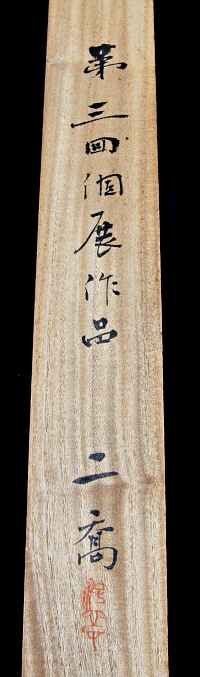 第三回個展作品 二喬